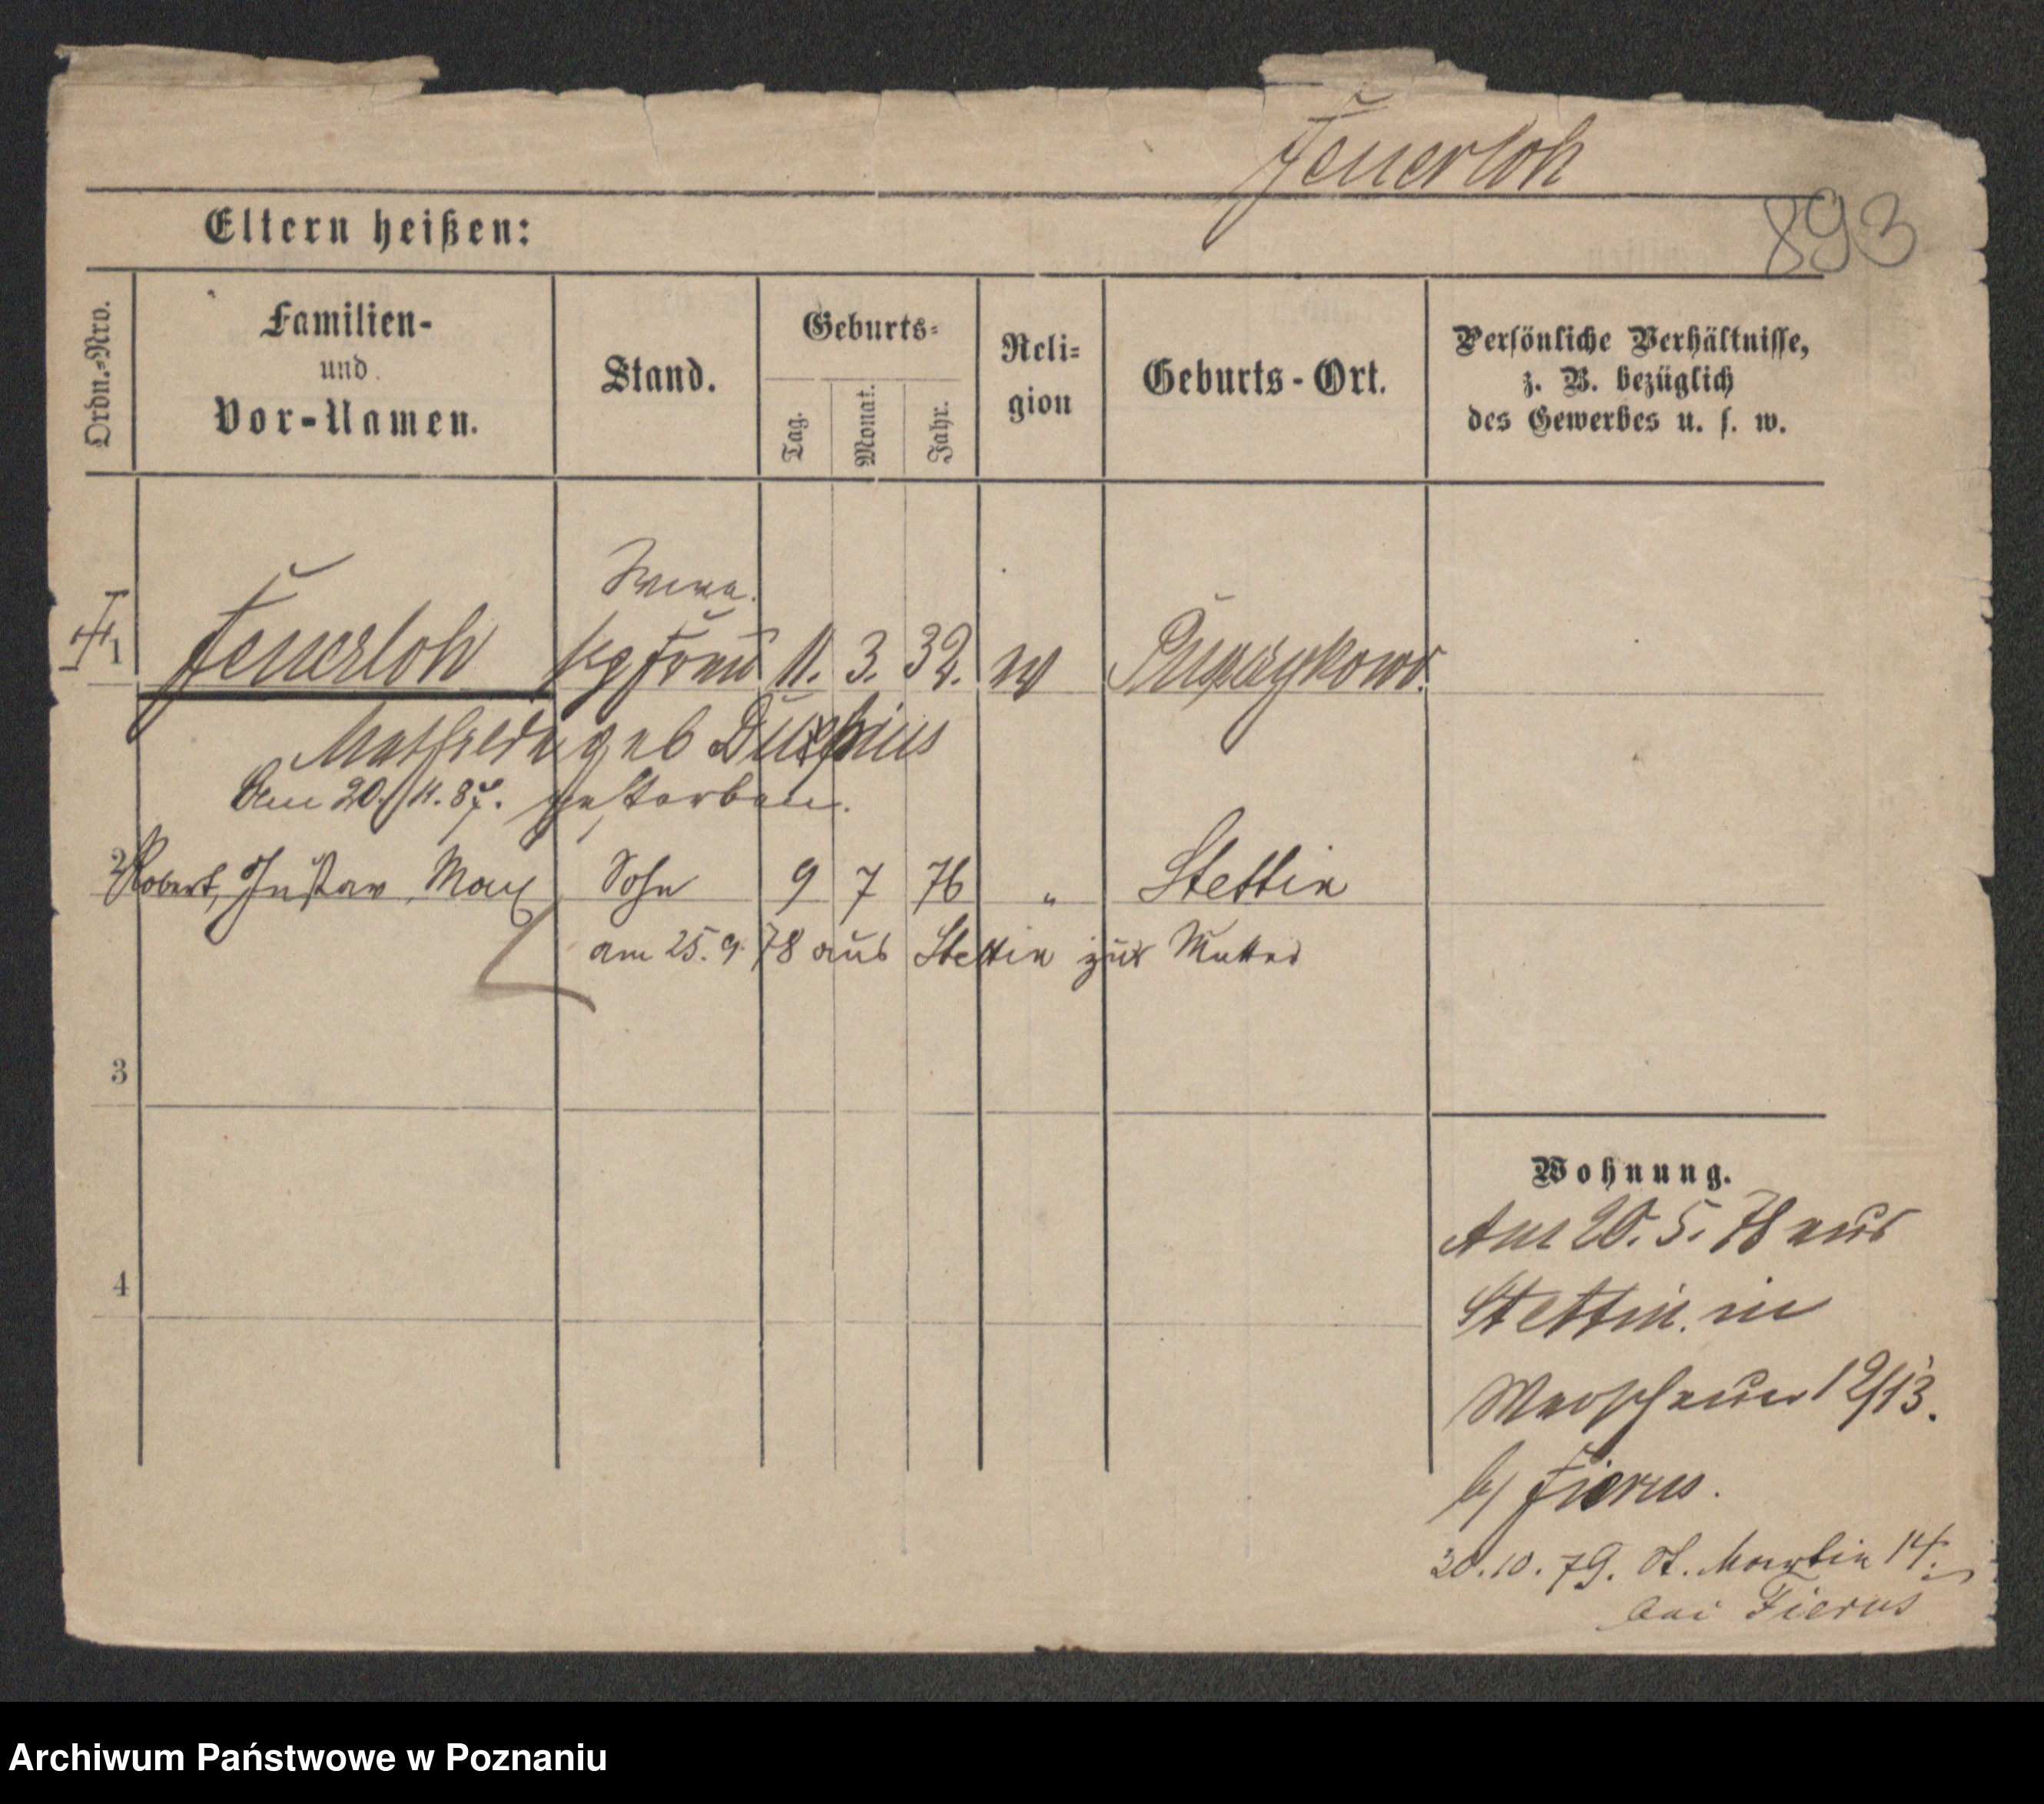 Feuerloh
893
Eltern heißen:
Ordn.-Nro.
Familien-
und
Vor-Namen.
Stand.
Geburts-
Tag.
Monat.
Jahr.
Reli-
gion
Geburts-Ort.
Persönliche Verhältnisse,
z. B. bezüglich
des Gewerbes u. s. w.
1 Feuerloh 11. 3. 32.
Mathilde geb
Am 20./11. 87. gestorben.
2 Robert, Gustav, Max Sohn 9 7 76 " Stettin
am 25. 9. 78 aus Stettin zur Mutter
3
4
Wohnung.
Am 20. 5. 78 aus
Stettin in
12/13.
b/ Fierus.
20. 10. 79. St. Martin 14.
bei Fierus
Archiwum Państwowe w Poznaniu